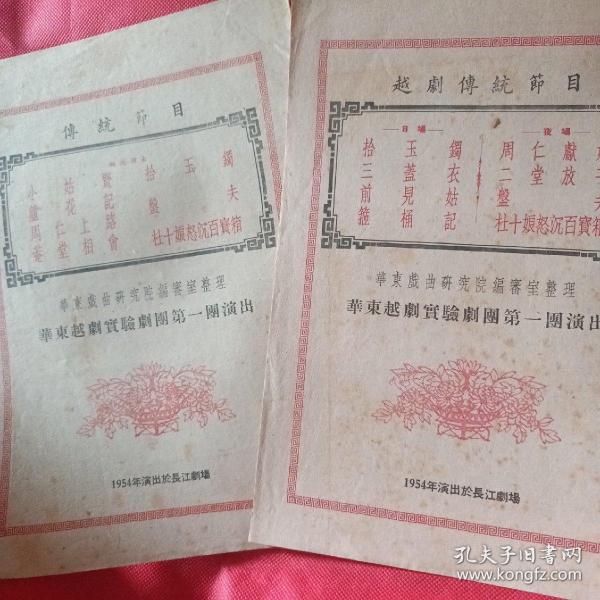 傳統節目
拾玉鐲
小姑賢
盤夫
周仁上路
杜十娘怒沉百寶箱
華東戲曲研究院編審室整理
華東越劇實驗劇團第一團演出
1954年演出於長江劇場
越劇傳統節目
日場
拾玉鐲
三蓋衣
前見姑
箍桶記
夜場
周仁獻
二堂放
盤夫
杜十娘怒沉百寶箱
華東戲曲研究院編審室整理
華東越劇實驗劇團第一團演出
1954年演出於長江劇場
孔夫子旧书网
www.kongfz.com